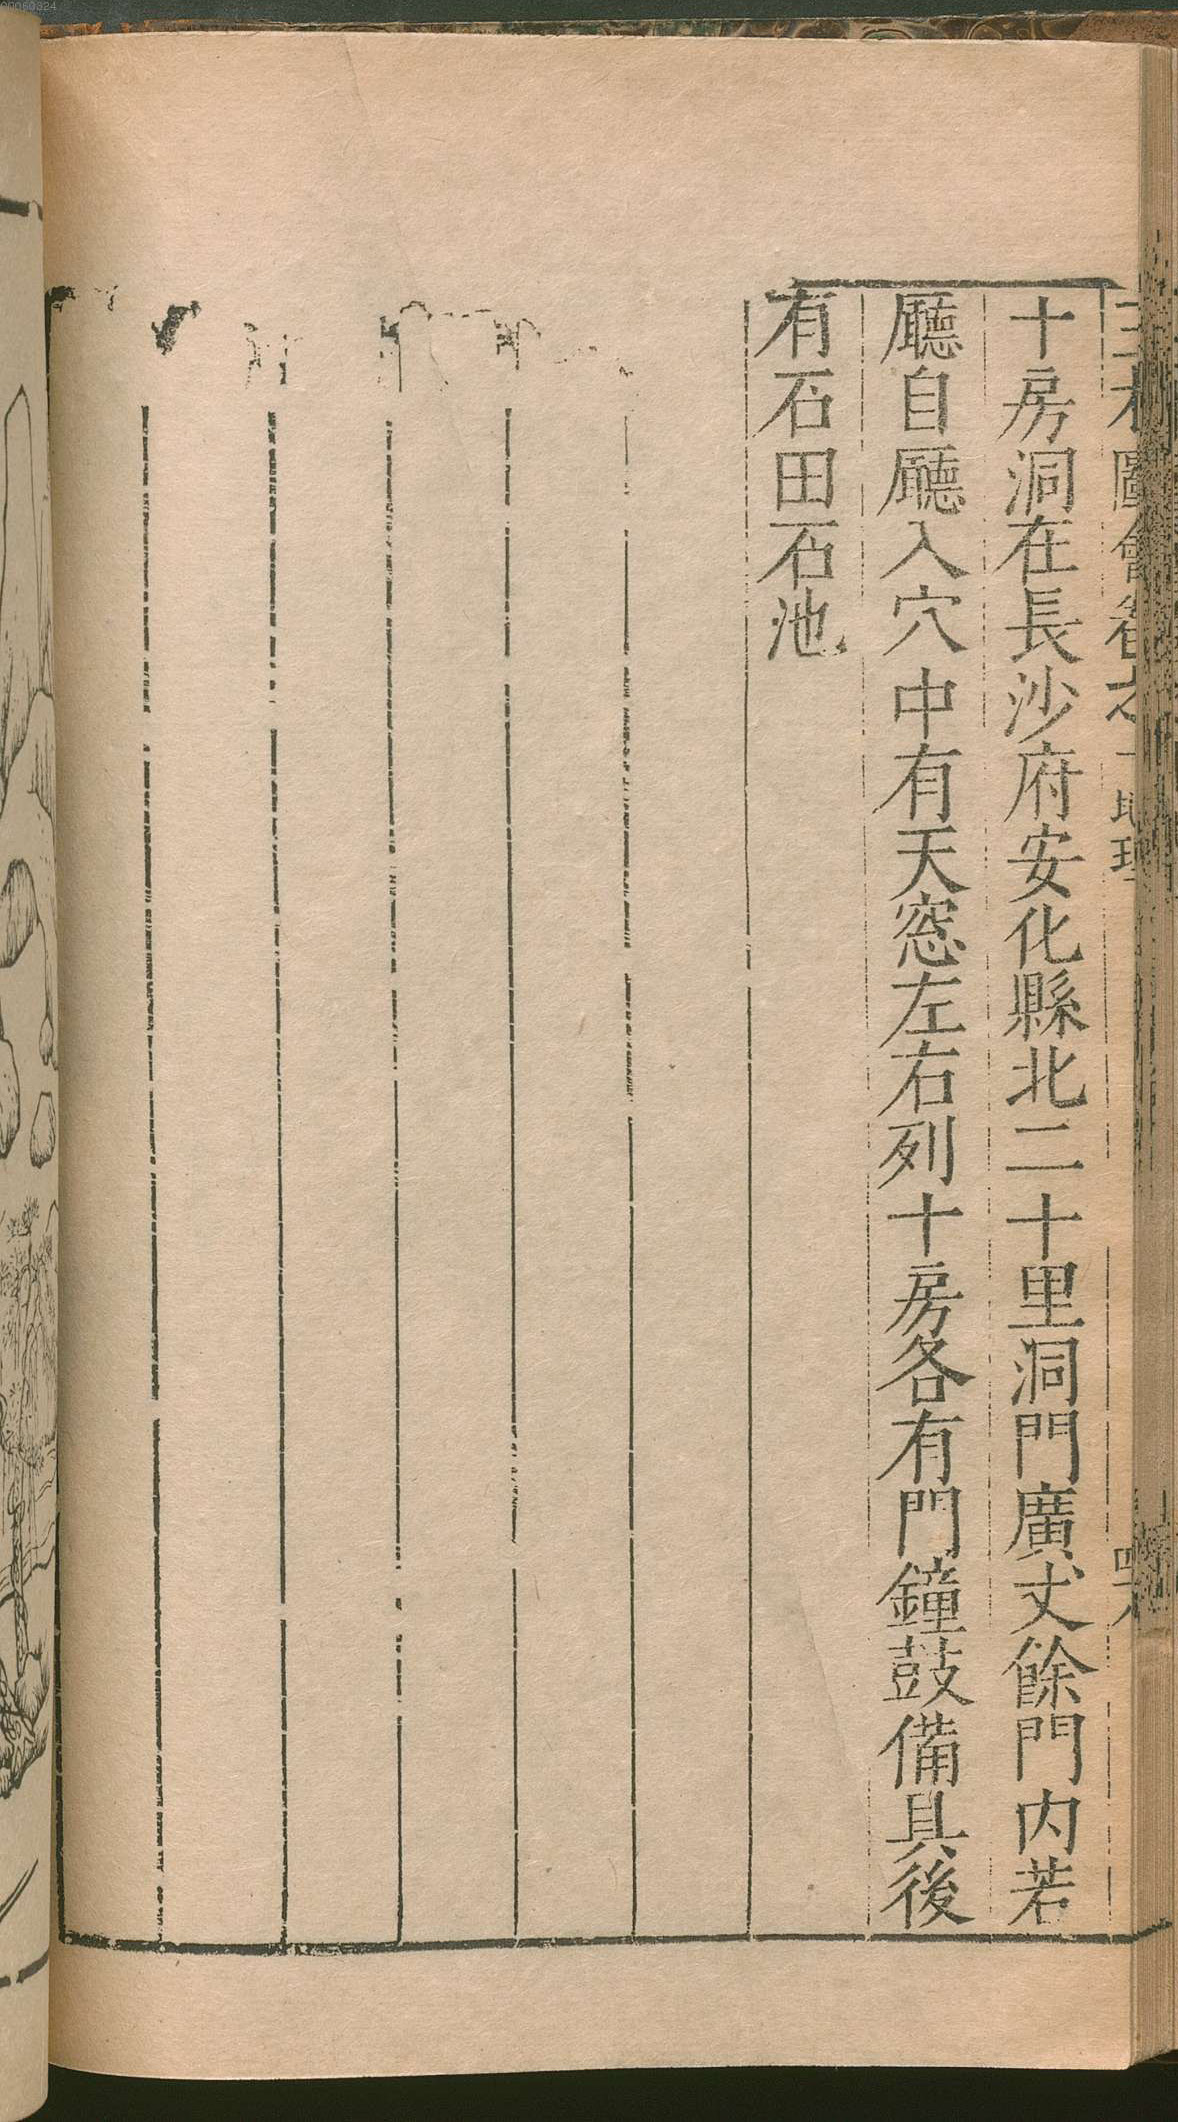 00060324
三才圖會卷之十地理
十房洞在長沙府安化縣北二十里洞門廣丈餘門内若
廳自廳入穴中有天窓左右列十房各有門鐘鼓備具後
有石田石池